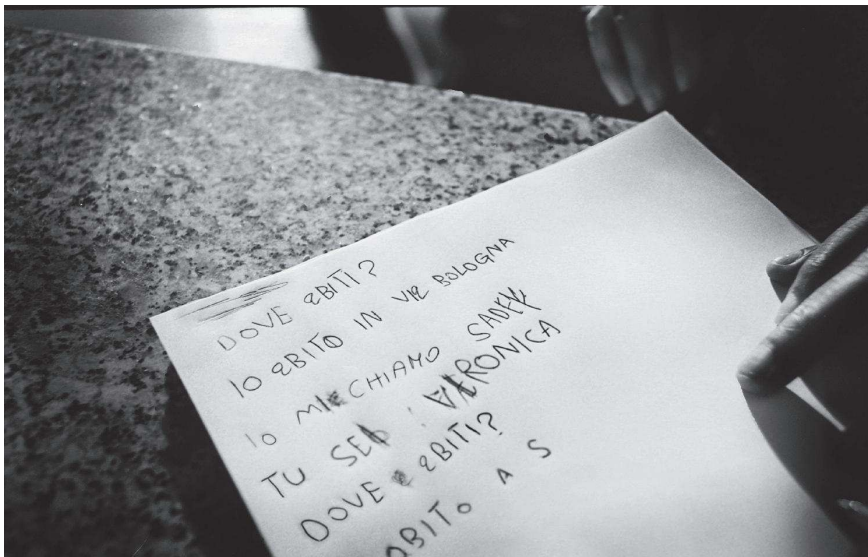 DOVE aBITI?
IO aBITO IN VIa BOLOGNA
IO MI CHIAMO SADEK
TU SEI : VERONICA
DOVE aBITI?
ABITO A S